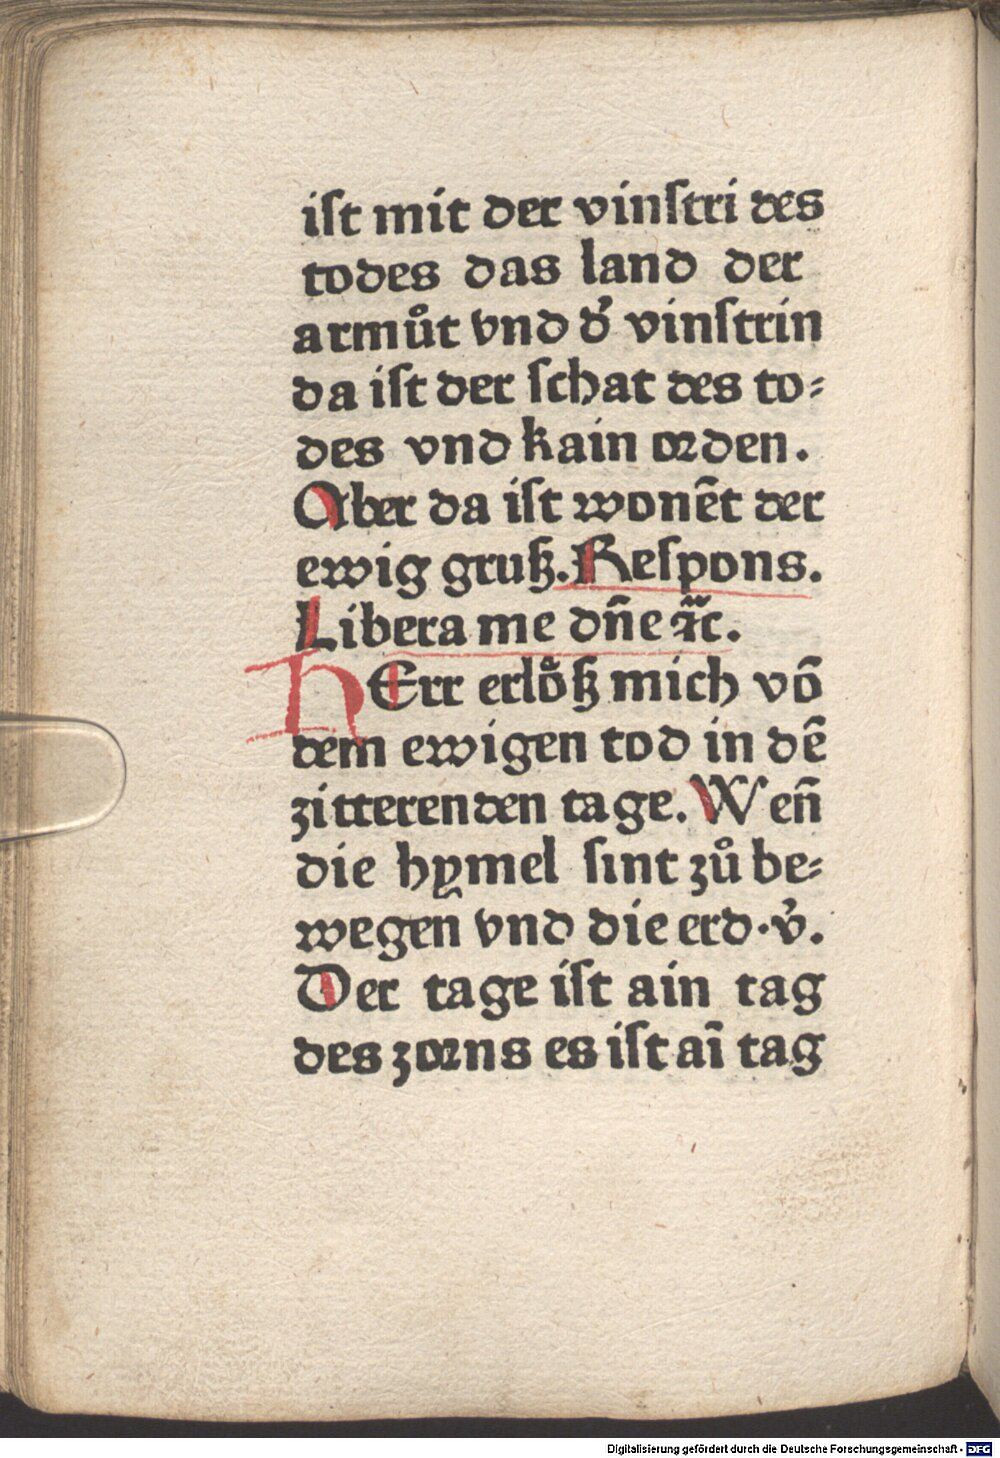 iſt mit der vinſtri des
todes das land der
armůt vnd d᷒ vinſtrin
da iſt der ſchat des to⸗
des vnd kain orden.
Aber da iſt wonēt der
ewig gruſz. Reſpons.
Libera me dñe ⁊c̃.
HErr erlöſz mich vō
dem ewigen tod in dē
zitterenden tage. Weñ
die hymel ſint zů be⸗
wegen vnd die erd · v᷒.
Der tage iſt ain tag
des zorns es iſt aī tag
Digitalisierung gefördert durch die Deutsche Forschungsgemeinschaft - DFG